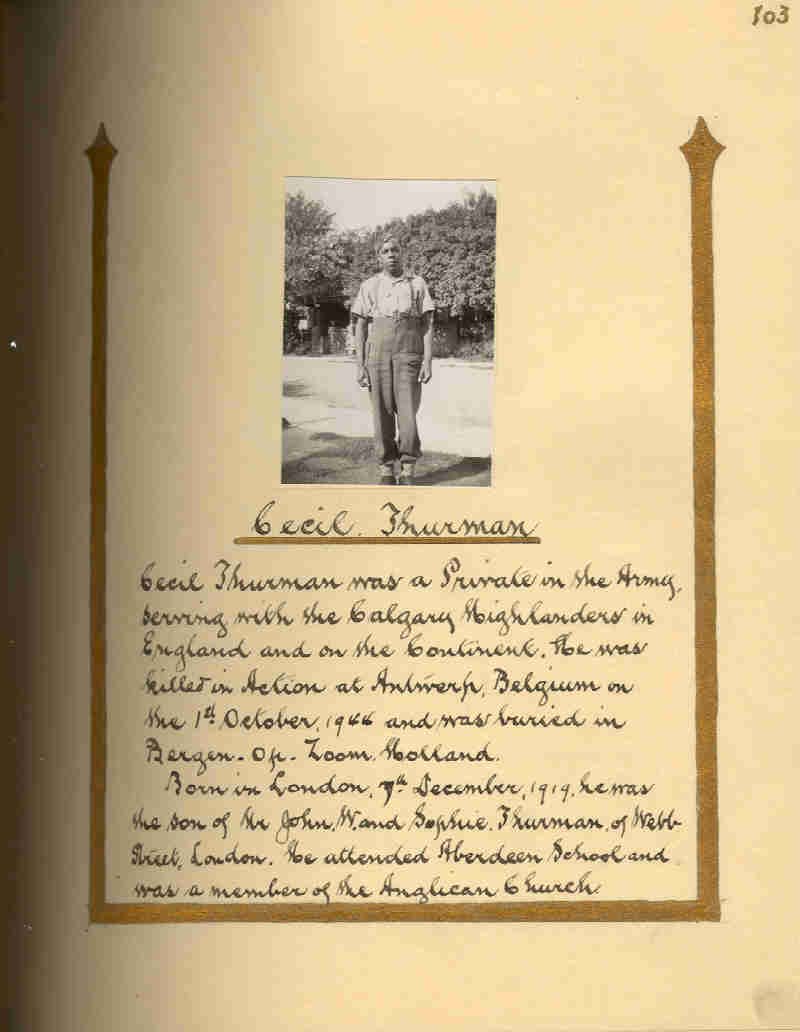 103
Cecil Thurman
Cecil Thurman was a Private in the Army,
serving with the Calgary Highlanders in
England and on the Continent. He was
killed in Action at Antwerp, Belgium on
the 1st October, 1944 and was buried in
Bergen-Op-Zoom, Holland.
Born in London, 7th December, 1919, he was
the son of Mr John W. and Sophie Thurman, of Webb
Street, London. He attended Aberdeen School and
was a member of the Anglican Church